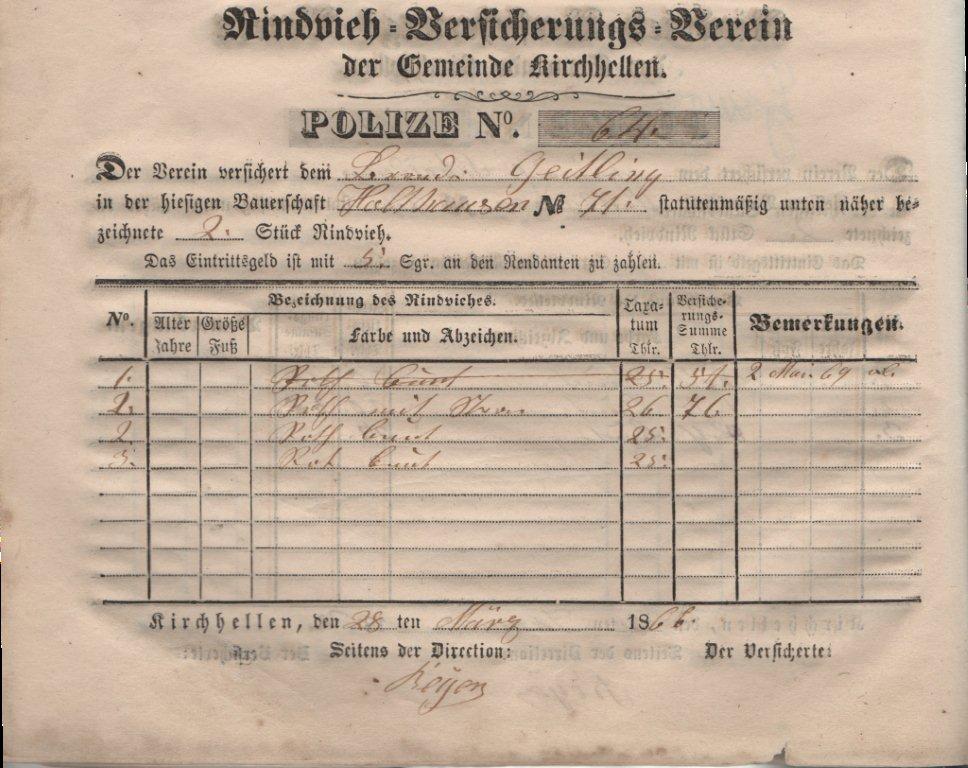 Rindvieh-Versicherungs-Verein
der Gemeinde Kirchhellen.
POLIZE No. 64.
Der Verein versichert dem Geitling
in der hiesigen Bauerschaft Holthausen № 71. statutenmäßig unten näher be-
zeichnete 2. Stück Rindvieh.
Das Eintrittsgeld ist mit 5. Sgr. an den Rendanten zu zahlen.
No. Alter Jahre Größe Fuß Bezeichnung des Rindviehes. Farbe und Abzeichen. Taxatum Thlr. Versiche-rungs-Summe Thlr. Bemerkungen.
1. Roth bunt 25. 51. 2 Mai 69
2. Roth mit 26. 76.
2. Roth bunt 25.
3. Rot bunt 25.
Kirchhellen, den 28 ten März 1866.
Seitens der Direction: Der Versicherte: